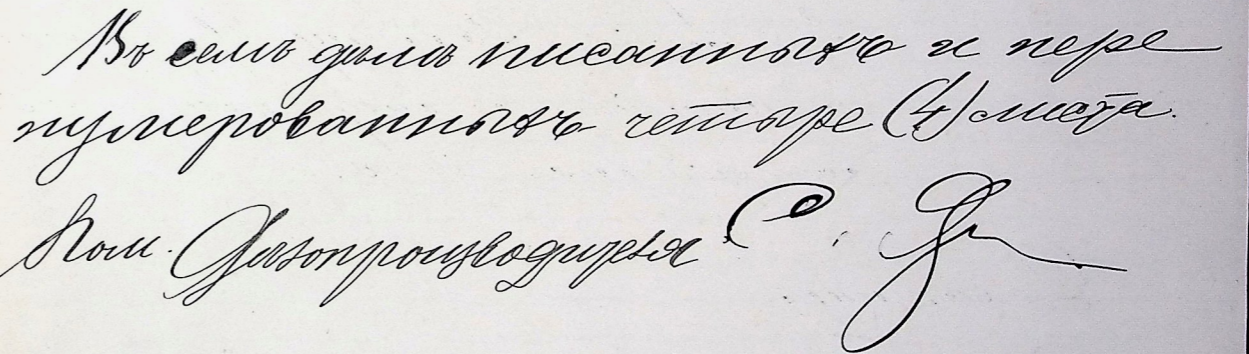 Въ семъ дѣлѣ писанныхъ и пере
нумерованныхъ четыре (4) листа.
Пом. Дѣлопроизводителя С.